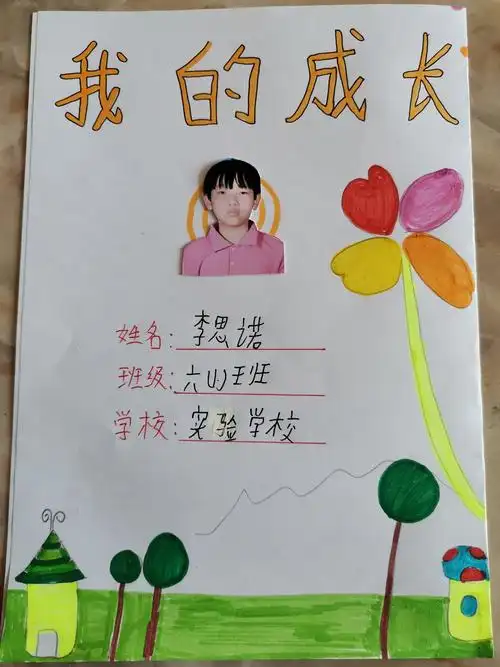 我的成长
姓名:李思诺
班级:六(1)班
学校:实验学校